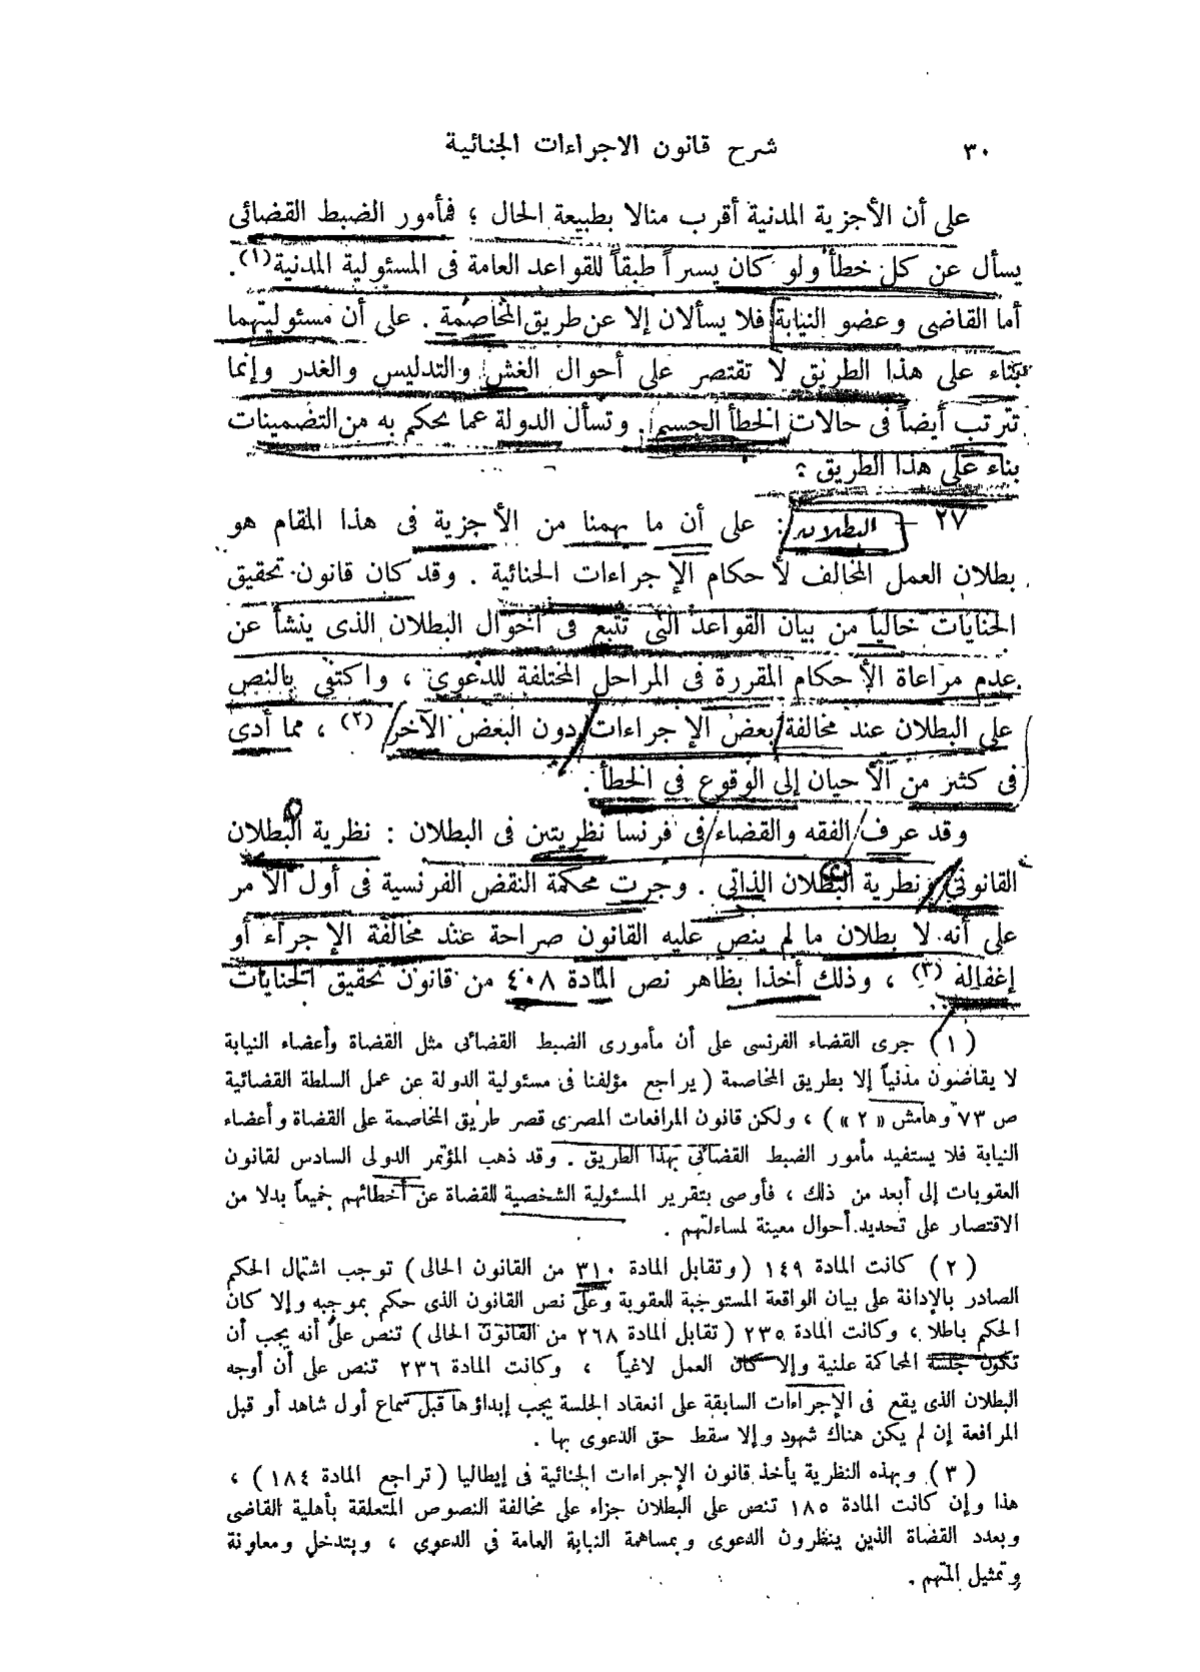 ٣٠
شرح قانون الاجراءات الجنائية
على أن الأجزية المدنية أقرب منالا بطبيعة الحال ؛ فمأمور الضبط القضائى
يسأل عن كل خطأ ولو كان يسيراً طبقاً للقواعد العامة فى المسئولية المدنية (١) .
أما القاضى وعضو النيابة فلا يسألان إلا عن طريق المخاصمة . على أن مسئوليتهما
بناء على هذا الطريق لا تقتصر على أحوال الغش والتدليس والغدر وإنما
تترتب أيضاً فى حالات الخطأ الجسيم . وتسأل الدولة عما يحكم به من التضمينات
بناء على هذا الطريق .
٢٧ – البطلان : على أن ما يهمنا من الأجزية فى هذا المقام هو
بطلان العمل المخالف لأحكام الإجراءات الجنائية . وقد كان قانون تحقيق
الجنايات خالياً من بيان القواعد التى تتبع فى أحوال البطلان الذى ينشأ عن
عدم مراعاة الأحكام المقررة فى المراحل المختلفة للدعوى ، واكتفى بالنص
على البطلان عند مخالفة بعض الإجراءات دون البعض الآخر (٢) ، مما أدى
فى كثير من الأحيان إلى الوقوع فى الخطأ .
وقد عرف الفقه والقضاء فى فرنسا نظريتين فى البطلان : نظرية البطلان
القانونى ونظرية البطلان الذاتى . وجرت محكمة النقض الفرنسية فى أول الأمر
على أنه لا بطلان ما لم ينص عليه القانون صراحة عند مخالفة الإجراء أو
إغفاله (٣) ، وذلك أخذا بظاهر نص المادة ٤٠٨ من قانون تحقيق الجنايات
(١) جرى القضاء الفرنسى على أن مأمورى الضبط القضائى مثل القضاة وأعضاء النيابة
لا يقاضون مدنياً إلا بطريق المخاصمة ( يراجع مؤلفنا فى مسئولية الدولة عن عمل السلطة القضائية
ص ٧٣ وهامش « ٢ » ) ، ولكن قانون المرافعات المصرى قصر طريق المخاصمة على القضاة وأعضاء
النيابة فلا يستفيد مأمور الضبط القضائى بهذا الطريق . وقد ذهب المؤتمر الدولى السادس لقانون
العقوبات إلى أبعد من ذلك ، فأوصى بتقرير المسئولية الشخصية للقضاة عن أخطائهم جميعاً بدلا من
الاقتصار على تحديد أحوال معينة لمساءلتهم .
(٢) كانت المادة ١٤٩ ( وتقابل المادة ٣١٠ من القانون الحالى ) توجب اشتمال الحكم
الصادر بالإدانة على بيان الواقعة المستوجبة للعقوبة وعلى نص القانون الذى حكم بموجبه وإلا كان
الحكم باطلا ، وكانت المادة ٢٣٥ ( تقابل المادة ٢٦٨ من القانون الحالى ) تنص على أنه يجب أن
تكون جلسة المحاكمة علنية وإلا كان العمل لاغياً ، وكانت المادة ٢٣٦ تنص على أن أوجه
البطلان الذى يقع فى الإجراءات السابقة على انعقاد الجلسة يجب إبداؤها قبل سماع أول شاهد أو قبل
المرافعة إن لم يكن هناك شهود وإلا سقط حق الدعوى بها .
(٣) وبهذه النظرية يأخذ قانون الإجراءات الجنائية فى إيطاليا ( تراجع المادة ١٨٤ ) ،
هذا وإن كانت المادة ١٨٥ تنص على البطلان جزاء على مخالفة النصوص المتعلقة بأهلية القاضى
وبعدد القضاة الذين ينظرون الدعوى وبمساهمة النيابة العامة فى الدعوى ، وبتدخل ومعاونة
وتمثيل المتهم .